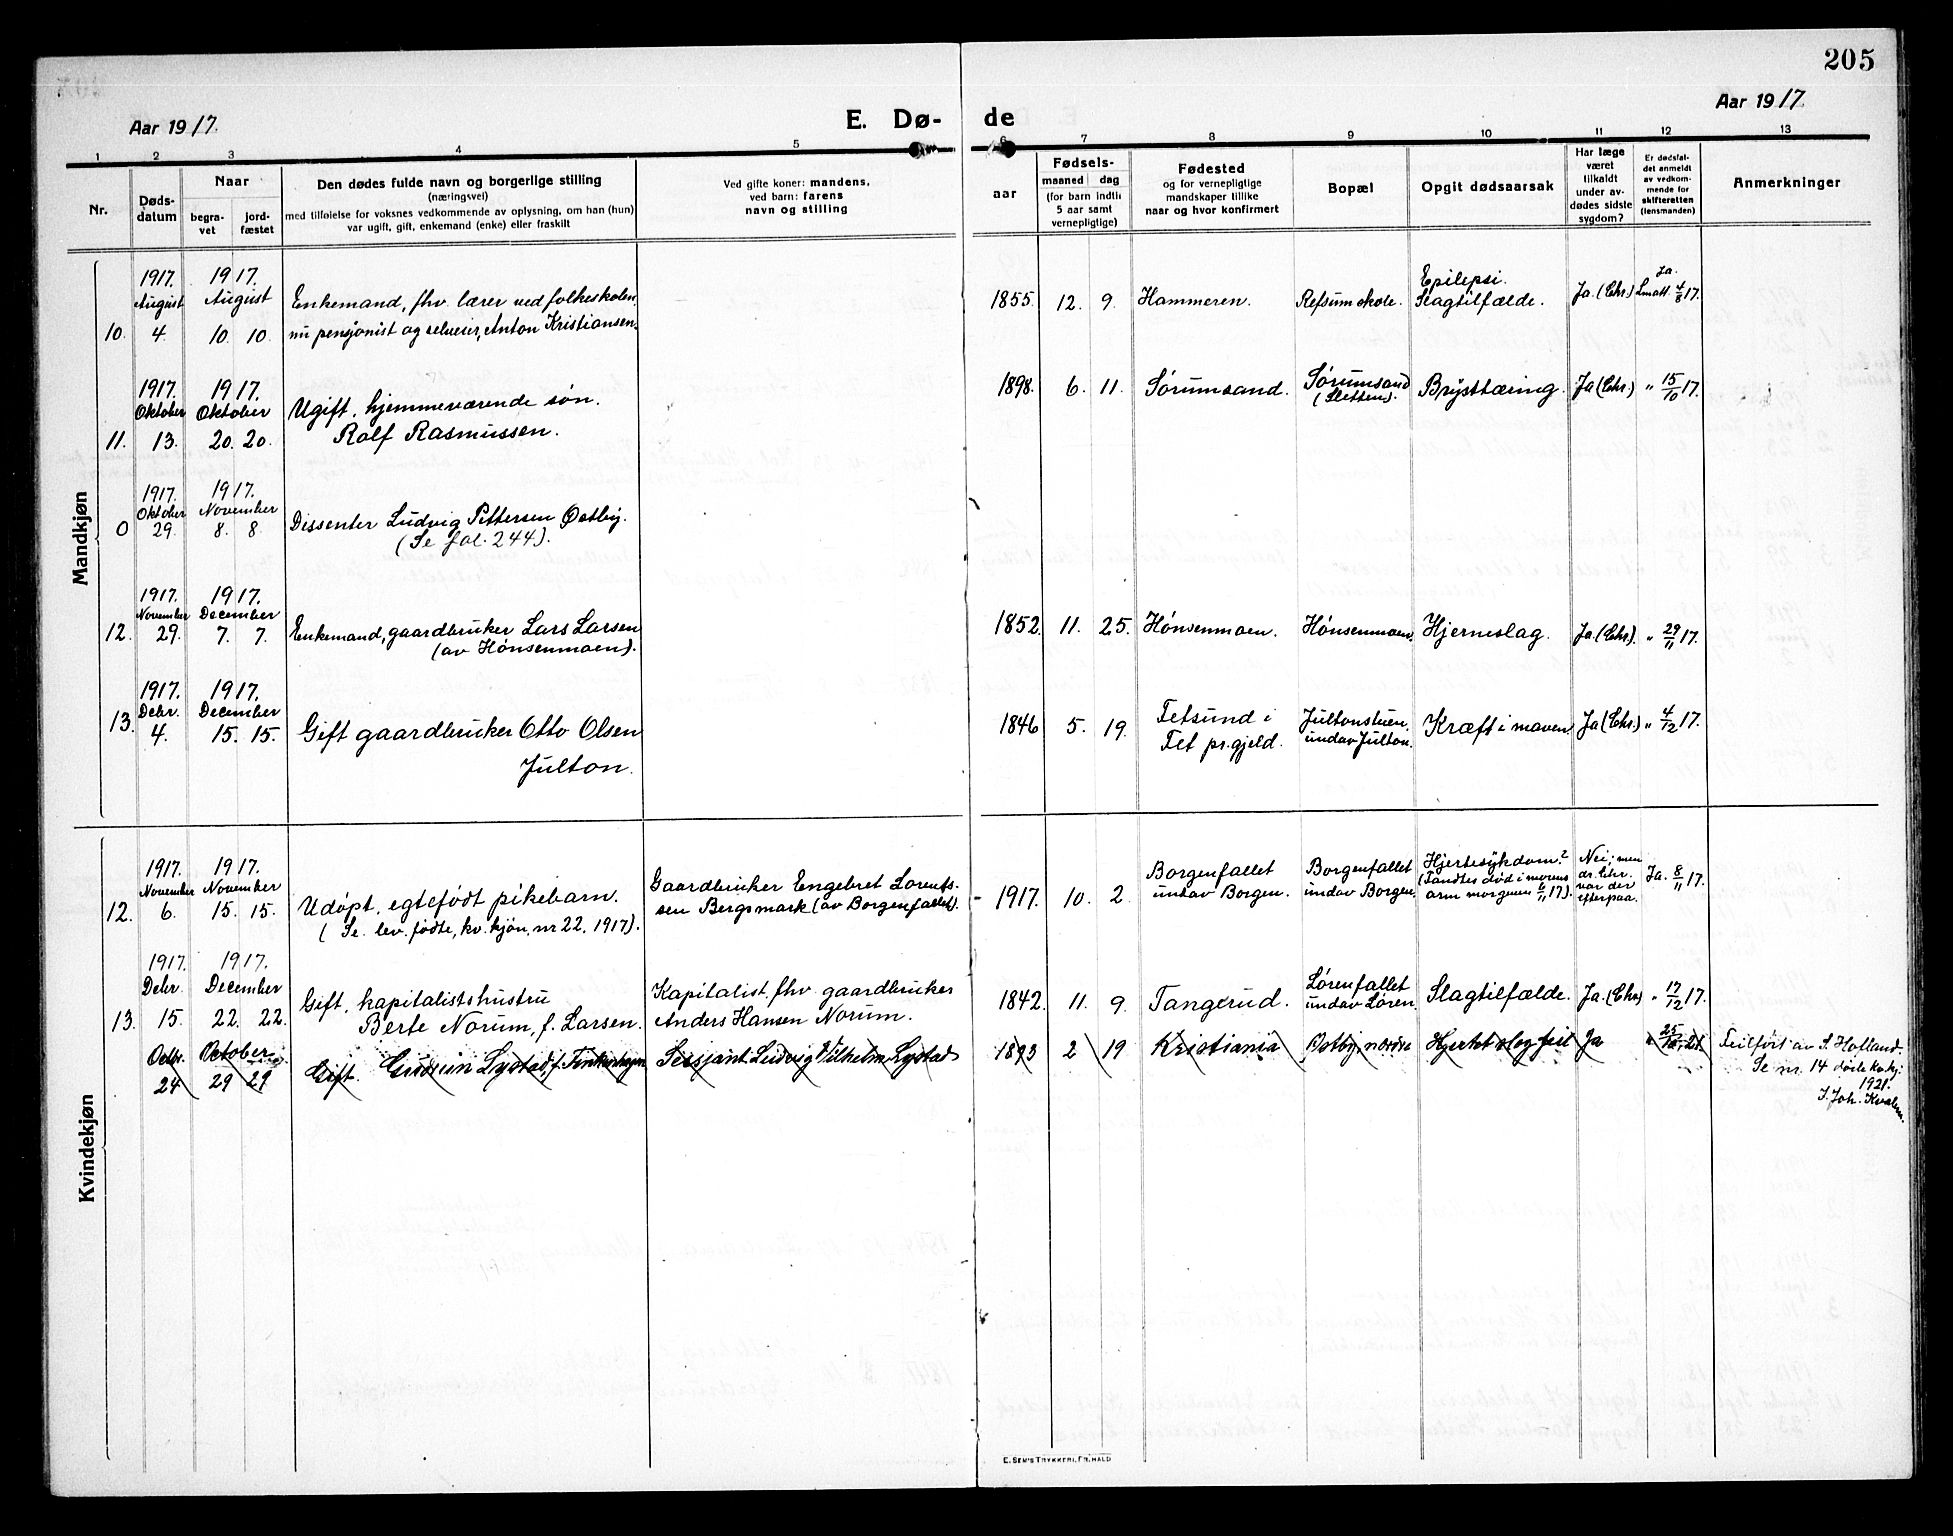 205
Aar 1917.
E. Dø- de
Aar 1917.
1 2 3 4 5 6 7 8 9 10 11 12 13
Nr.
Døds-
datum
Naar
begra-
vet
jord-
fæstet
Den dødes fulde navn og borgerlige stilling
(næringsvei)
med tilføielse for voksnes vedkommende av oplysning, om han (hun)
var ugift, gift, enkemand (enke) eller fraskilt
Ved gifte koner: mandens,
ved barn: farens
navn og stilling
aar
Fødsels-
maaned dag
(for barn indtil
5 aar samt
vernepligtige)
Fødested
og for vernepligtige
mandskaper tillike
naar og hvor konfirmert
Bopæl
Opgit dødsaarsak
Har læge
været
tilkaldt
under av-
dødes sidste
sygdom?
Er dødsfal-
det anmeldt
av vedkom-
mende for
skifteretten
(lensmanden)
Anmerkninger
Mandkjøn
1917. 1917. Epilepsi. Ja.
August August Enkemand, fhv. lærer ved folkeskolen, 1855. 12. 9. Hammeren. Refsum skole. Slagtilfælde. Ja. (Chr.) 4/8 17.
10. 4. 10. 10. nu pensjonist og selveier, Anton Kristiansen.
1917. 1917. 1898. 6. 11. Sørumsand. Sørumsand Brysttæring. Ja (Chr.) " 15/10 17.
Oktober Oktober Ugift, hjemmeværende søn. (Sletten).
11. 13. 20. 20. Rolf Rasmussen.
1917. 1917.
Oktober November
0 29. 8. 8. Dissenter Ludvig Pettersen Østby.
(Se fol. 244).
1917. 1917.
November December
12. 29. 7. 7. Enkemand, gaardbruker Lars Larsen 1852. 11. 25. Hønsenmoen. Hønsenmoen. Hjerneslag. Ja (Chr.) " 29/11 17.
(av Hønsenmoen).
1917. 1917.
Debr. December Fetsund i Jultonstuen,
13. 4. 15. 15. Gift gaardbruker Otto Olsen 1846 5. 19. Fet pr.gjeld. undav Julton. Kræft i maven Ja (Chr.) " 4/12 17.
Julton.
Kvindekjøn
1917. 1917. Borgenfallet Borgenfallet Hjertesykdom? Nei; men
November November Gaardbruker Engebret Lorents- 1917. 10. 2. undav Borgen. undav Borgen. (Fandtes død i morens dr. Chr. Ja. 8/11 17.
12. 6. 15. 15. Udøpt, egtefødt pikebarn. sen Bergsmark (av Borgenfallet). arm morgenen 6/11 17). var der
efterpaa.
(Se lev. fødte, kv. kjøn, nr 22, 1917).
1917. 1917. Lørenfallet
Debr. December Gift, kapitalistshustru Kapitalist, fhv. gaardbruker 1842. 11. 9. Tangerud. undav Løren. Slagtilfælde. Ja. (Chr.) " 17/12 17.
13. 15. 22. 22. Berte Norum, f. Larsen. Anders Hansen Norum.
Octbr. October Gift. Gudrun Lystad, f. Sersjant Ludvig Vilhelm Lystad 1893 2 19 Kristiania Østby, nordre Hjerteklapfeil Ja " 25/10 21. Feilført av S. Hofland.
24 29 29 Se nr. 14 døde kv.kj.
1921.
Joh. Kvalem.
E. SEM'S TRYKKERI, FR.HALD